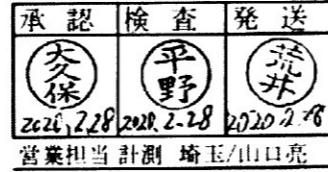 承認 検査 発送
大久保 平野 荒井
2020.2.28 2020.2.28 2020.2.28
営業担当 計測 埼玉/山口亮